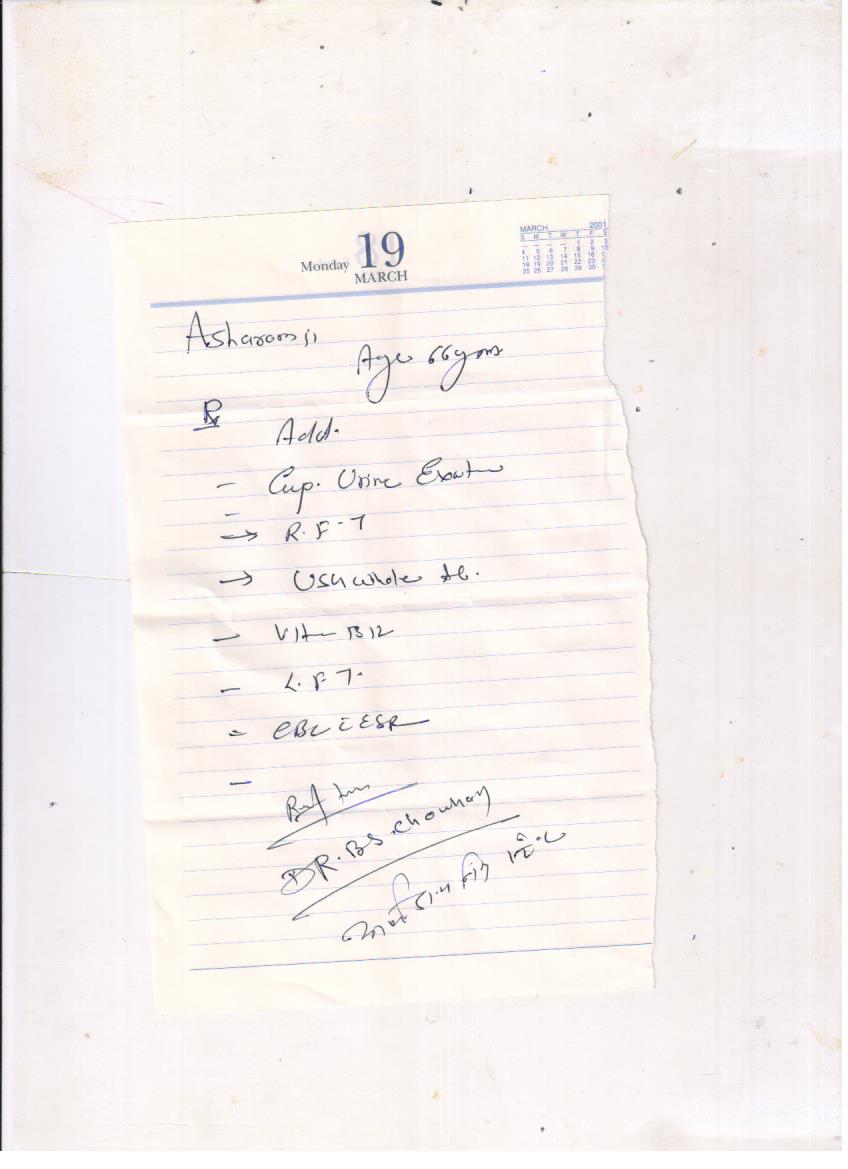 MARCH 2001
S M T W T F S
— — — — 1 2 3
4 5 6 7 8 9 10
11 12 13 14 15 16
18 19 20 21 22 23
25 26 27 28 29 30
19
Monday
MARCH
Asharamji
Age 66 yrs
Rx
Add.
- Cup. Urine
→ R.F.T
→ USG whole Ab.
- Vitm B12
- L.F.T.
= CBC c̄ ESR
-
Ref
DR. B.S. Chouhan